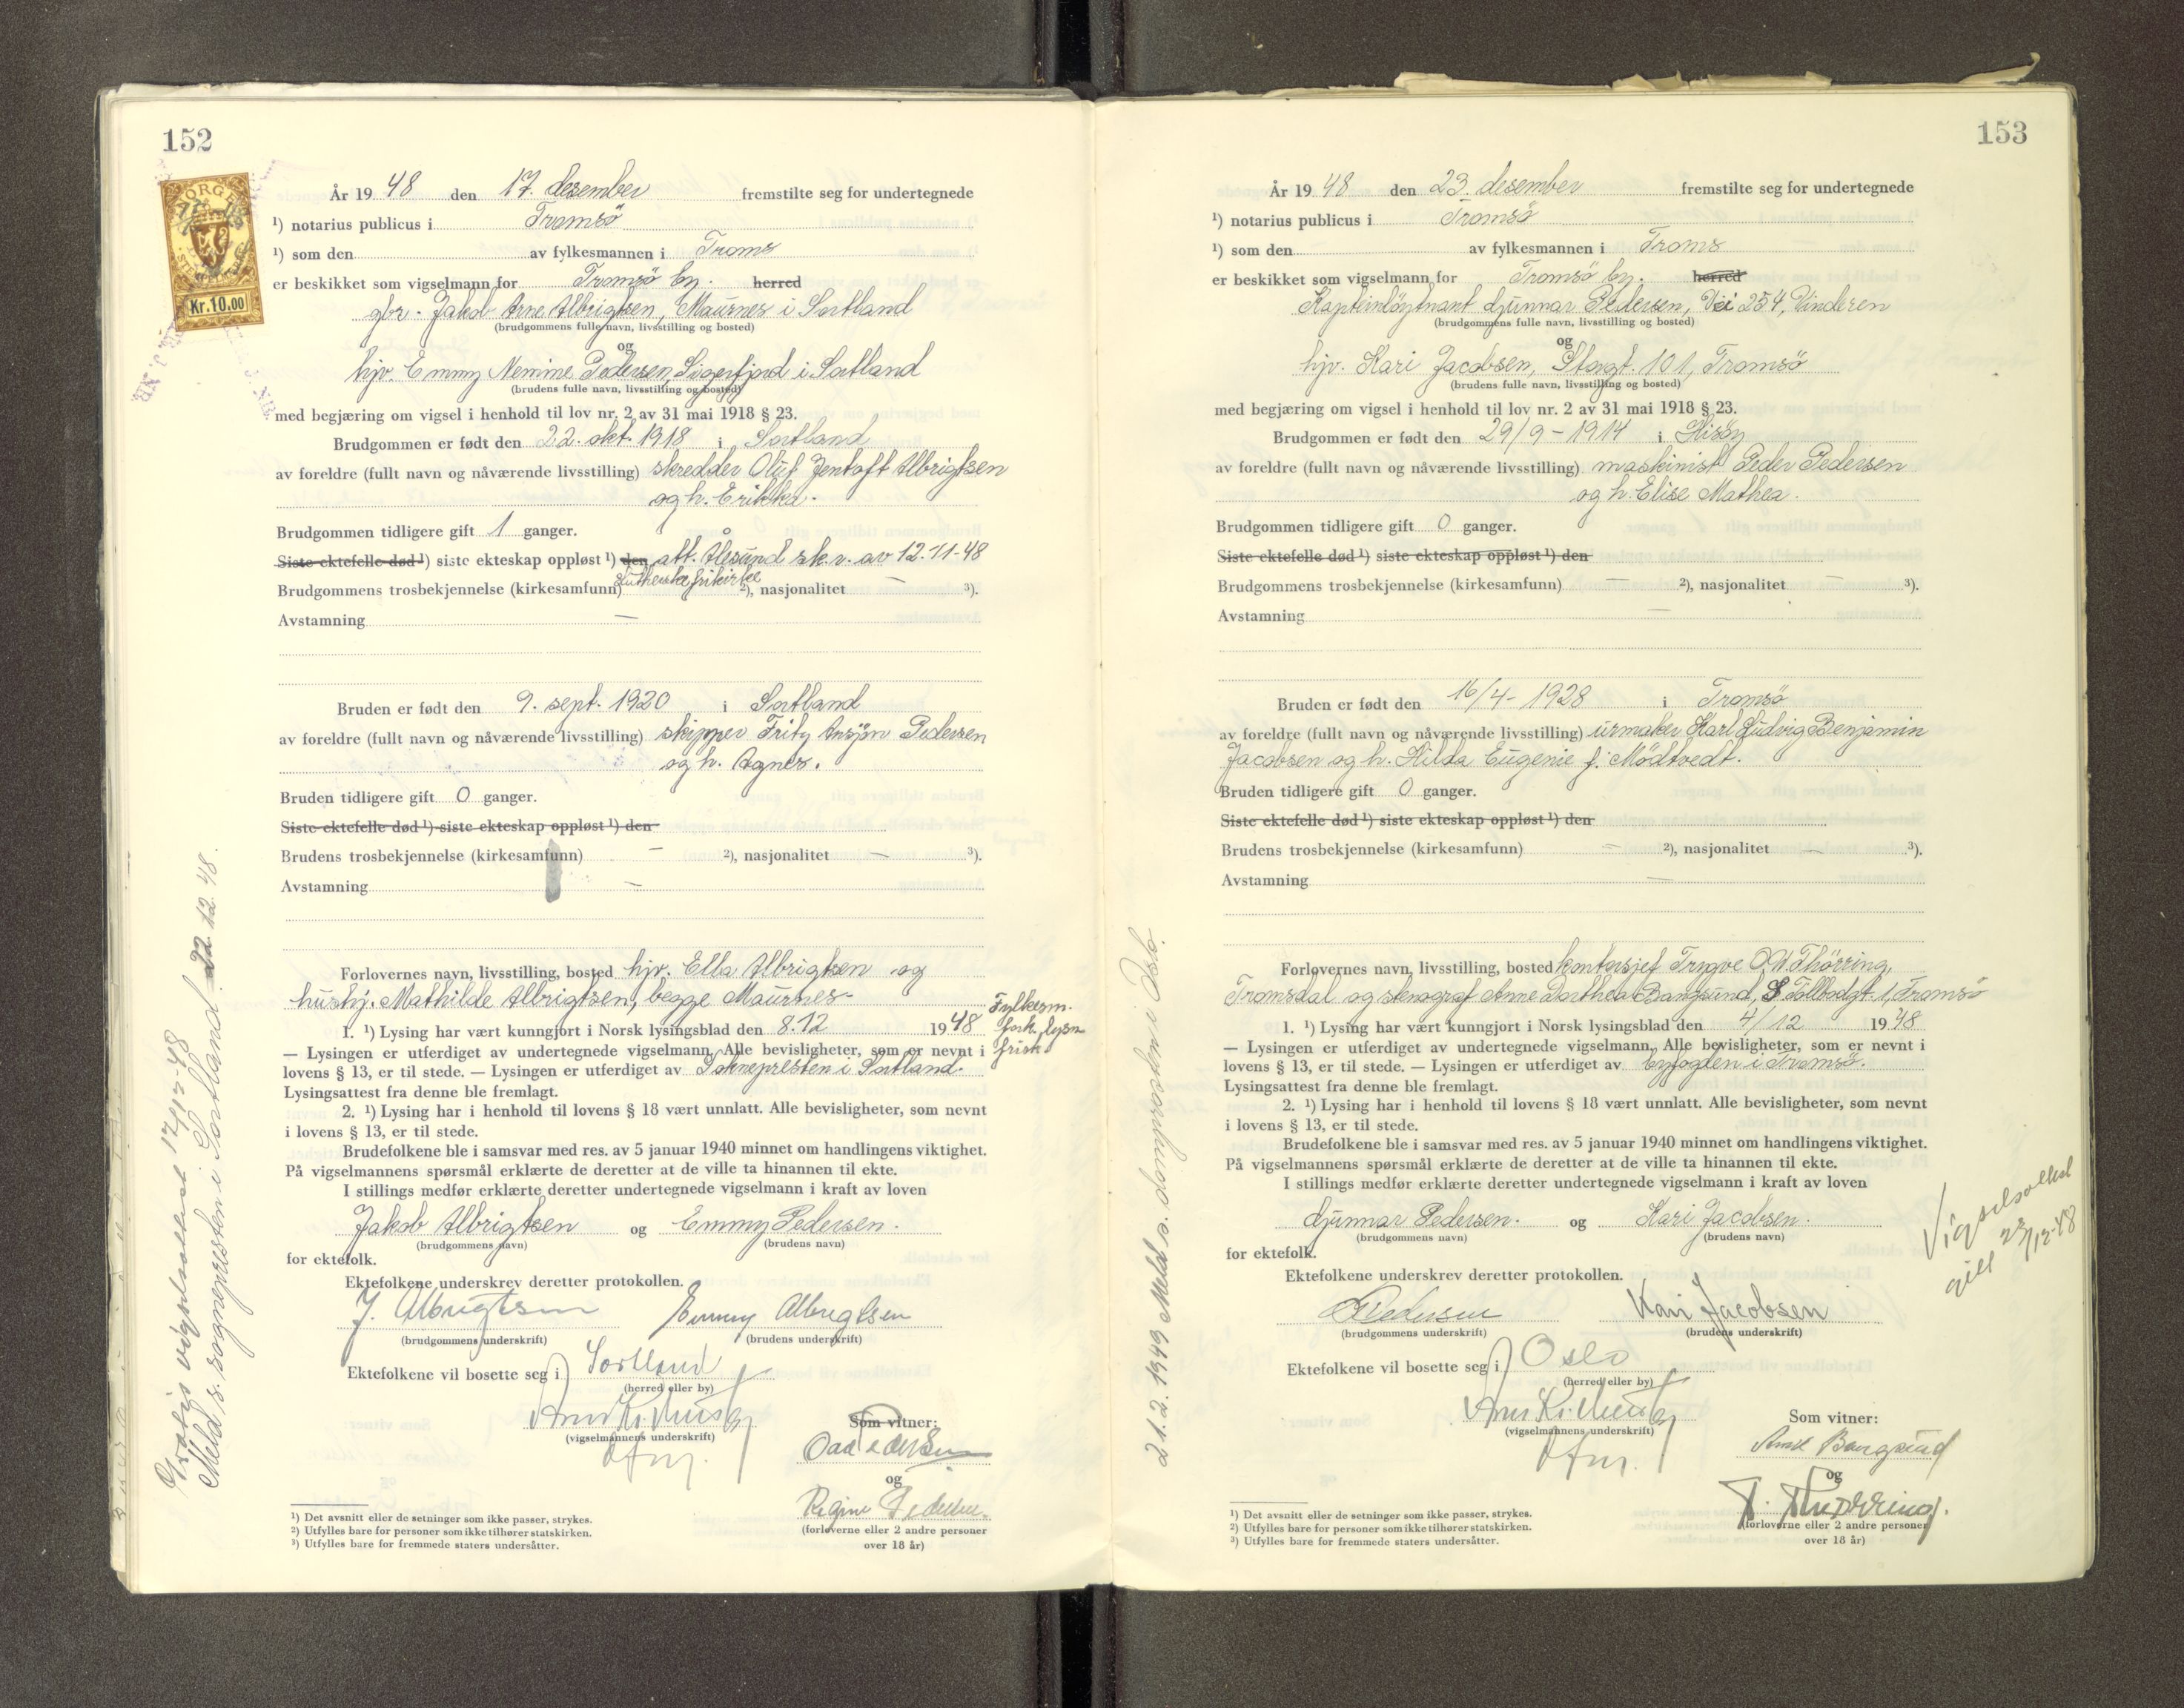 152
NORGE
Kr.10.00
År 1948 den 17. desember fremstilte seg for undertegnede
¹) notarius publicus i Tromsö
¹) som den av fylkesmannen i Troms
er beskikket som vigselmann for Tromsö by. herred
gbr. Jakob Arne Albrigtsen, Maurnes i Sortland
(brudgommens fulle navn, livsstilling og bosted)
og
hjv. Emmy Nemine Pedersen, Sigerfjord i Sortland
(brudens fulle navn, livsstilling og bosted)
med begjæring om vigsel i henhold til lov nr. 2 av 31 mai 1918 § 23.
Brudgommen er født den 22. okt. 1918 i Sortland
av foreldre (fullt navn og nåværende livsstilling) skredder Oluf Jentoft Albrigtsen
og h. Erikka.
Brudgommen tidligere gift 1 ganger.
Siste ektefelle død ¹) siste ekteskap oppløst ¹) den att. Ålesund sk.r. av 12-11-48
Brudgommens trosbekjennelse (kirkesamfunn) Lutherske frikirke ²), nasjonalitet — ³).
Avstamning —
Bruden er født den 9. sept. 1920 i Sortland
av foreldre (fullt navn og nåværende livsstilling) skipper Fritz Ansjøn Pedersen
og h. Agnes.
Bruden tidligere gift 0 ganger.
Siste ektefelle død ¹) siste ekteskap oppløst ¹) den
Brudens trosbekjennelse (kirkesamfunn) — ²), nasjonalitet — ³).
Avstamning —
Forlovernes navn, livsstilling, bosted hjv. Ella Albrigtsen og
hushj. Mathilde Albrigtsen, begge Maurnes
1. ¹) Lysing har vært kunngjort i Norsk lysingsblad den 8.12 1948 Fylkesm. fork. lysn frist
— Lysingen er utferdiget av undertegnede vigselmann. Alle bevisligheter, som er nevnt i
lovens § 13, er til stede. — Lysingen er utferdiget av Soknepresten i Sortland.
Lysingsattest fra denne ble fremlagt.
2. ¹) Lysing har i henhold til lovens § 18 vært unnlatt. Alle bevisligheter, som nevnt
i lovens § 13, er til stede.
Brudefolkene ble i samsvar med res. av 5 januar 1940 minnet om handlingens viktighet.
På vigselmannens spørsmål erklærte de deretter at de ville ta hinannen til ekte.
I stillings medfør erklærte deretter undertegnede vigselmann i kraft av loven
Jakob Albrigtsen og Emmy Pedersen.
(brudgommens navn) (brudens navn)
for ektefolk.
Ektefolkene underskrev deretter protokollen.
J. Albrigtsen Emmy Albrigtsen
(brudgommens underskrift) (brudens underskrift)
Ektefolkene vil bosette seg i Sortland
(herred eller by)
(vigselmannens underskrift)
Som vitner:
og
Regine Pedersen
(forloverne eller 2 andre personer
over 18 år)
¹) Det avsnitt eller de setninger som ikke passer, strykes.
²) Utfylles bare for personer som ikke tilhører statskirken.
³) Utfylles bare for fremmede staters undersåtter.
Gratis vigselsattest 17/12-48
Meld s. sogneprsten i Sortland 22.12.48.
153
År 1948 den 23. desember fremstilte seg for undertegnede
¹) notarius publicus i Tromsö
¹) som den — av fylkesmannen i Troms
er beskikket som vigselmann for Tromsö by. herred
Kapteinløytnant Gunnar Pedersen, Vei 254, Vinderen
(brudgommens fulle navn, livsstilling og bosted)
og
hjv. Kari Jacobsen, Storgt. 101, Tromsö
(brudens fulle navn, livsstilling og bosted)
med begjæring om vigsel i henhold til lov nr. 2 av 31 mai 1918 § 23.
Brudgommen er født den 29/9-1914 i Hisöy
av foreldre (fullt navn og nåværende livsstilling) maskinist Peder Pedersen
og h. Elise Mathea.
Brudgommen tidligere gift 0 ganger.
Siste ektefelle død ¹) siste ekteskap oppløst ¹) den
Brudgommens trosbekjennelse (kirkesamfunn) — ²), nasjonalitet — ³).
Avstamning —
Bruden er født den 16/4-1928 i Tromsö
av foreldre (fullt navn og nåværende livsstilling) urmaker Karl Ludvig Benjamin
Jacobsen og h. Hilda Eugenie f. Mödtvedt.
Bruden tidligere gift 0 ganger.
Siste ektefelle død ¹) siste ekteskap oppløst ¹) den
Brudens trosbekjennelse (kirkesamfunn) — ²), nasjonalitet — ³).
Avstamning —
Forlovernes navn, livsstilling, bosted kontorsjef Trygve Thörring,
Tromsdal og stenograf Anne Dorthea Bangsund, Tollbodgt. 1, Tromsö
1. ¹) Lysing har vært kunngjort i Norsk lysingsblad den 4/12 1948
— Lysingen er utferdiget av undertegnede vigselmann. Alle bevisligheter, som er nevnt i
lovens § 13, er til stede. — Lysingen er utferdiget av byfogden i Tromsö.
Lysingsattest fra denne ble fremlagt.
2. ¹) Lysing har i henhold til lovens § 18 vært unnlatt. Alle bevisligheter, som nevnt
i lovens § 13, er til stede.
Brudefolkene ble i samsvar med res. av 5 januar 1940 minnet om handlingens viktighet.
På vigselmannens spørsmål erklærte de deretter at de ville ta hinannen til ekte.
I stillings medfør erklærte deretter undertegnede vigselmann i kraft av loven
Gunnar Pedersen. og Kari Jacobsen.
(brudgommens navn) (brudens navn)
for ektefolk.
Ektefolkene underskrev deretter protokollen.
G Pedersen Kari Jacobsen
(brudgommens underskrift) (brudens underskrift)
Ektefolkene vil bosette seg i Oslo
(herred eller by)
(vigselmannens underskrift)
Som vitner:
Anne Bangsund
og
T. Thörring.
(forloverne eller 2 andre personer
over 18 år)
¹) Det avsnitt eller de setninger som ikke passer, strykes.
²) Utfylles bare for personer som ikke tilhører statskirken.
³) Utfylles bare for fremmede staters undersåtter.
21.2.1949 Meld s. domprosten i Oslo.
Vigselsattest
gitt 23/12-48